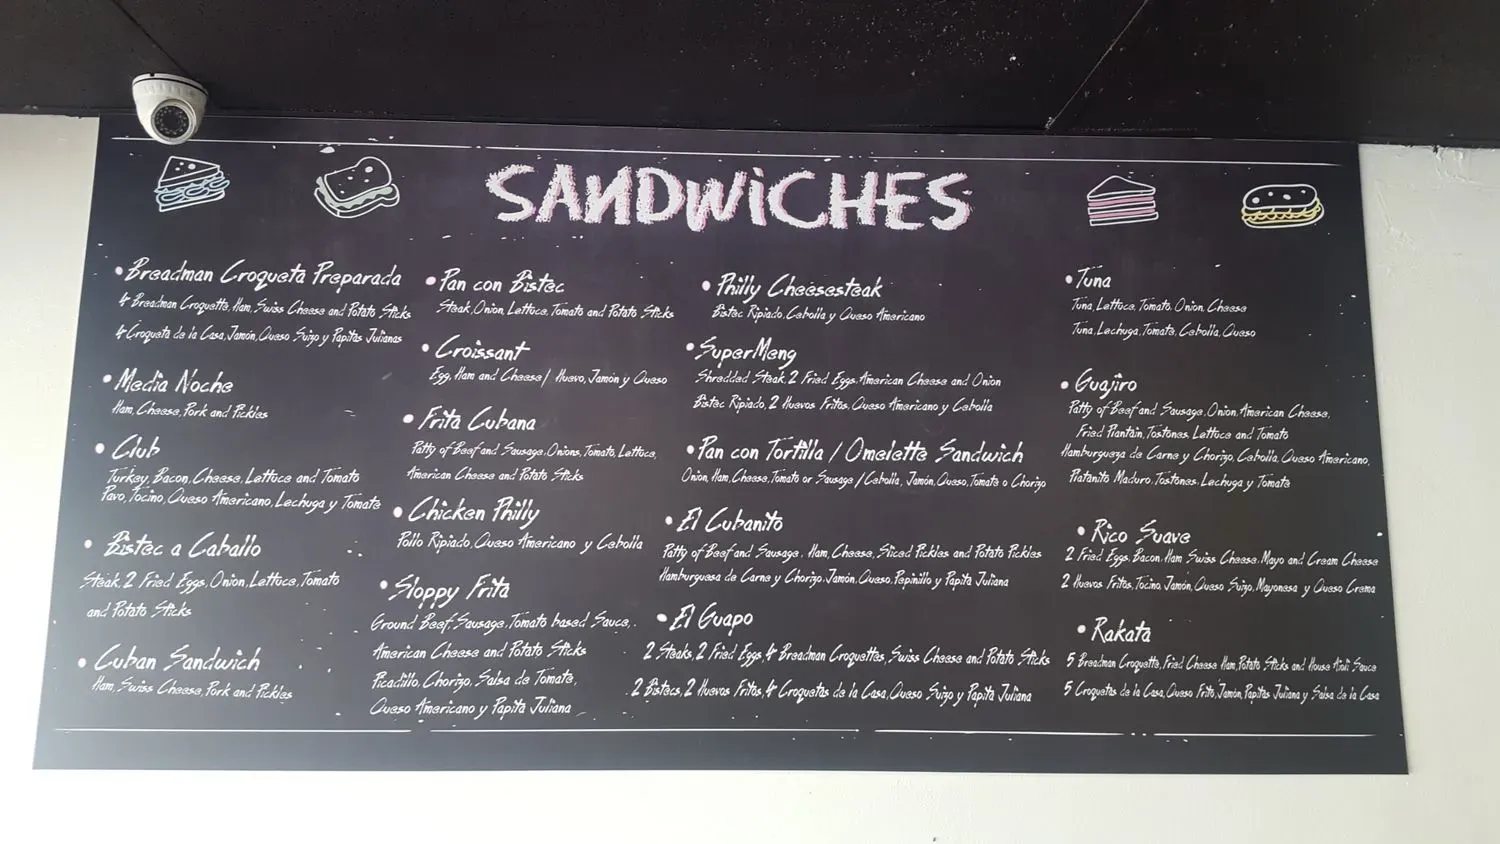 SANDWiCHES
• Breadman Croqueta Preparada
4 Breadman Croquette, Ham, Swiss Cheese and Potato Sticks
4 Croqueta de la Casa, Jamón, Queso Suizo y Papitas Julianas
• Media Noche
Ham, Cheese, Pork and Pickles
• Club
Turkey, Bacon, Cheese, Lettuce and Tomato
Pavo, Tocino, Queso Americano, Lechuga y Tomate
• Bistec a Caballo
Steak, 2 Fried Eggs, Onion, Lettuce, Tomato
and Potato Sticks
• Cuban Sandwich
Ham, Swiss Cheese, Pork and Pickles
• Pan con Bistec
Steak, Onion, Lettuce, Tomato and Potato Sticks
• Croissant
Egg, Ham and Cheese / Huevo, Jamón y Queso
• Frita Cubana
Patty of Beef and Sausage, Onions, Tomato, Lettuce,
American Cheese and Potato Sticks
• Chicken Philly
Pollo Ripiado, Queso Americano y Cebolla
• Sloppy Frita
Ground Beef, Sausage, Tomato based Sauce,
American Cheese and Potato Sticks
Picadillo, Chorizo, Salsa de Tomate,
Queso Americano y Papita Juliana
• Philly Cheesesteak
Bistec Ripiado, Cebolla y Queso Americano
• SuperMeng
Shredded Steak, 2 Fried Eggs, American Cheese and Onion
Bistec Ripiado, 2 Huevos Fritos, Queso Americano y Cebolla
• Pan con Tortilla / Omelette Sandwich
Onion, Ham, Cheese, Tomato or Sausage / Cebolla, Jamón, Queso, Tomate o Chorizo
• El Cubanito
Patty of Beef and Sausage, Ham, Cheese, Sliced Pickles and Potato Pickles
Hamburguesa de Carne y Chorizo, Jamón, Queso, Pepinillo y Papita Juliana
• El Guapo
2 Steaks, 2 Fried Eggs, 4 Breadman Croquettes, Swiss Cheese and Potato Sticks
2 Bistecs, 2 Huevos Fritos, 4 Croquetas de la Casa, Queso Suizo y Papita Juliana
• Tuna
Tuna, Lettuce, Tomato, Onion, Cheese
Tuna, Lechuga, Tomate, Cebolla, Queso
• Guajiro
Patty of Beef and Sausage, Onion, American Cheese,
Fried Plantain, Tostones, Lettuce and Tomato
Hamburgueza de Carne y Chorizo, Cebolla, Queso Americano,
Platanito Maduro, Tostones, Lechuga y Tomate
• Rico Suave
2 Fried Eggs, Bacon, Ham, Swiss Cheese, Mayo and Cream Cheese
2 Huevos Fritos, Tocino, Jamón, Queso Suizo, Mayonesa y Queso Crema
• Rakata
5 Breadman Croquette, Fried Cheese, Ham, Potato Sticks and House Aioli Sauce
5 Croquetas de la Casa, Queso Frito, Jamón, Papitas Juliana y Salsa de la Casa